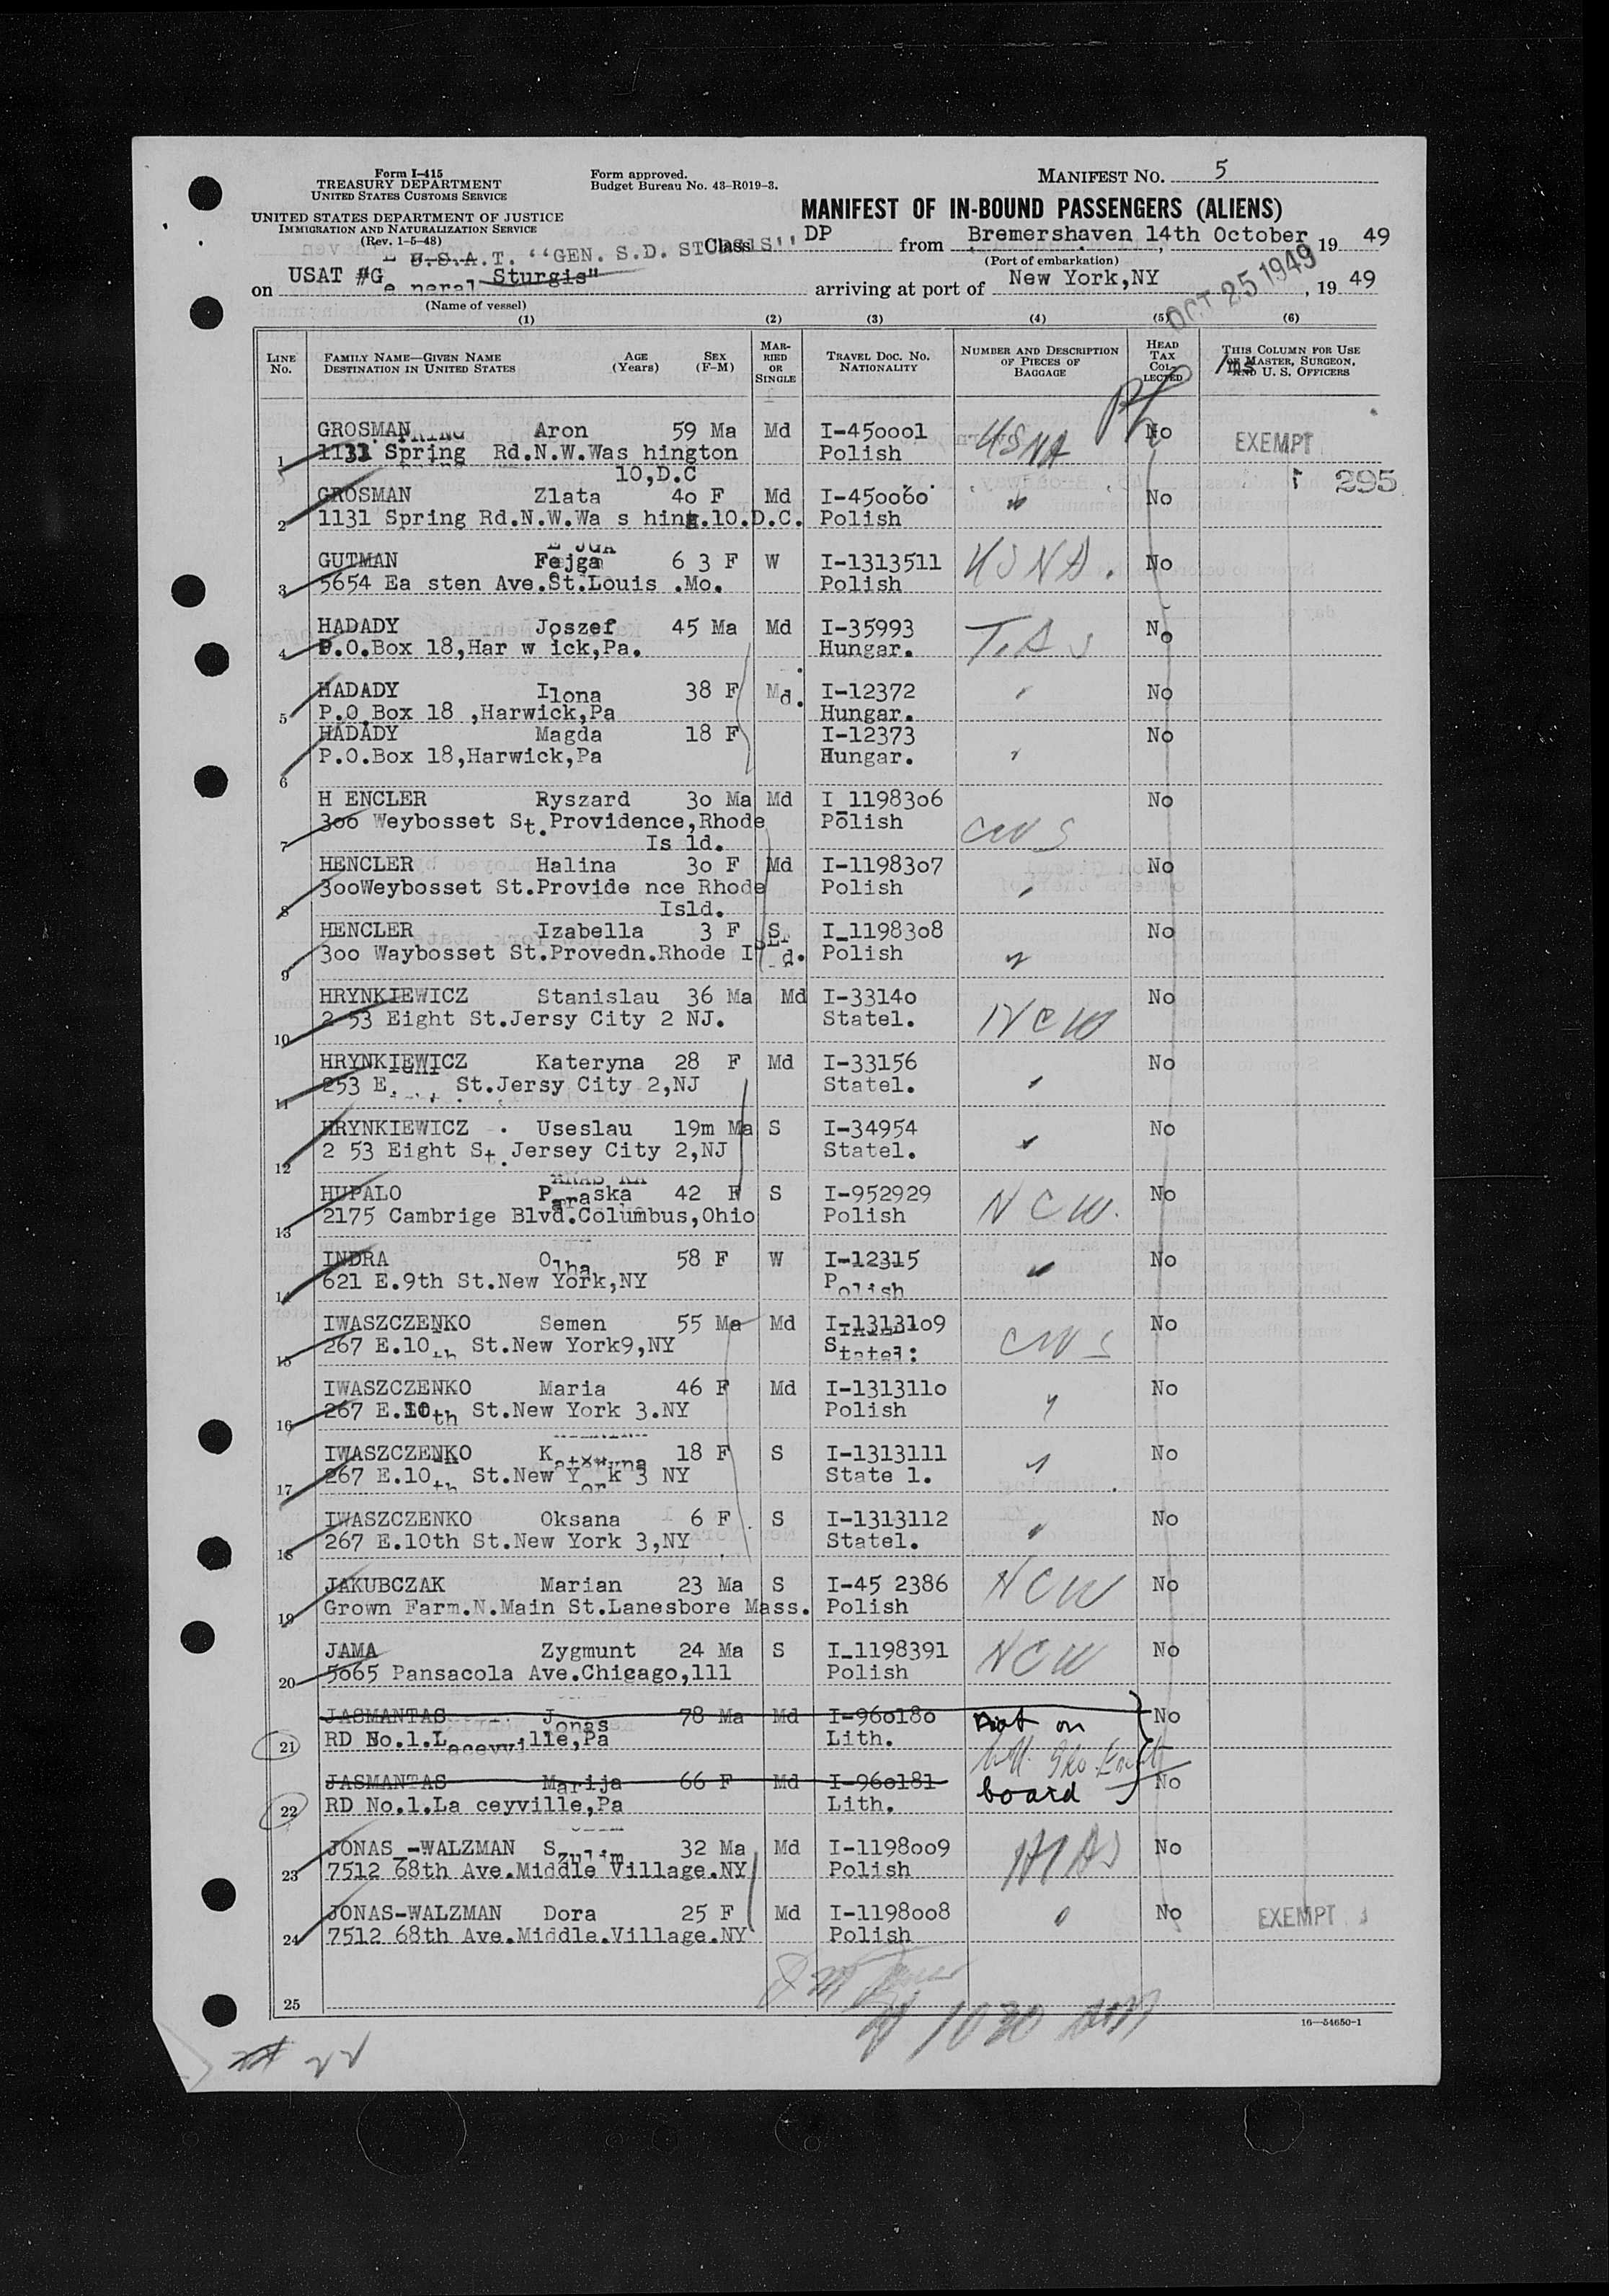 Form I-415
TREASURY DEPARTMENT
UNITED STATES CUSTOMS SERVICE
UNITED STATES DEPARTMENT OF JUSTICE
IMMIGRATION AND NATURALIZATION SERVICE
(Rev. 1-5-48)
Form approved.
Budget Bureau No. 43-R019-3.
MANIFEST NO. 5
MANIFEST OF IN-BOUND PASSENGERS (ALIENS)
U.S.A.T. "GEN. S.D. STURGIS"
Class DP from Bremershaven 14th October, 1949
(Port of embarkation)
on USAT "General Sturgis" arriving at port of New York,NY, 1949
(Name of vessel)
OCT 25 1949
(1) (2) (3) (4) (5) (6)
LINE No. FAMILY NAME—GIVEN NAME DESTINATION IN UNITED STATES AGE (Years) SEX (F-M) MARRIED OR SINGLE TRAVEL DOC. NO. NATIONALITY NUMBER AND DESCRIPTION OF PIECES OF BAGGAGE HEAD TAX COLLECTED THIS COLUMN FOR USE OF MASTER, SURGEON, AND U. S. OFFICERS
GROSMAN Aron 59 Ma Md I-450001 USNA No EXEMPT
1 1131 Spring Rd.N.W.Was hington Polish
10,D.C
295
GROSMAN Zlata 40 F Md I-450060 No
2 1131 Spring Rd.N.W.Wa s hing.10.D.C. Polish
GUTMAN Fejga 6 3 F W I-1313511 USNA. No
3 5654 Ea sten Ave.St.Louis .Mo. Polish
HADADY Joszef 45 Ma Md I-35993 No
4 P.O.Box 18,Har w ick,Pa. Hungar.
HADADY Ilona 38 F Md. I-12372 No
5 P.O.Box 18 ,Harwick,Pa Hungar.
HADADY Magda 18 F I-12373 No
6 P.O.Box 18,Harwick,Pa Hungar.
H ENCLER Ryszard 30 Ma Md I_1198306 No
7 300 Weybosset St.Providence,Rhode Polish CWS
Is ld.
HENCLER Halina 30 F Md I-1198307 No
8 300Weybosset St.Provide nce Rhode Polish
Isld.
HENCLER Izabella 3 F S I_1198308 No
9 300 Waybosset St.Provedn.Rhode Isld. Polish
HRYNKIEWICZ Stanislau 36 Ma Md I-33140 No
10 2 53 Eight St.Jersy City 2 NJ. Statel. NCW
HRYNKIEWICZ Kateryna 28 F Md I-33156 No
11 253 E. St.Jersy City 2,NJ Statel.
HRYNKIEWICZ Useslau 19m Ma S I-34954 No
12 2 53 Eight St.Jersey City 2,NJ Statel.
HUPALO Paraska 42 F S I-952929 NCW. No
13 2175 Cambrige Blvd.Columbus,Ohio Polish
INDRA Olha 58 F W I-12315 No
14 621 E.9th St.New York,NY Polish
IWASZCZENKO Semen 55 Ma Md I-1313109 No
15 267 E.10th St.New York9,NY Statel: CWS
IWASZCZENKO Maria 46 F Md I-1313110 No
16 267 E.10th St.New York 3.NY Polish
IWASZCZENKO 18 F S I-1313111 No
17 267 E.10th St.New York 3 NY State l.
IWASZCZENKO Oksana 6 F S I-1313112 No
18 267 E.10th St.New York 3,NY Statel.
JAKUBCZAK Marian 23 Ma S I-45 2386 NCW No
19 Grown Farm.N.Main St.Lanesbore Mass. Polish
JAMA Zygmunt 24 Ma S I_1198391 NCW No
20 5065 Pansacola Ave.Chicago,111 Polish
JASMANTAS Jonas 78 Ma Md I-960180 not on No
21 RD No.1.Laceyville,Pa Lith.
JASMANTAS Marija 66 F Md I-960181 board No
22 RD No.1.La ceyville,Pa Lith.
JONAS_-WALZMAN Szulim 32 Ma Md I-1198009 HIAS No
23 7512 68th Ave.Middle Village.NY Polish
JONAS-WALZMAN Dora 25 F Md I-1198008 No EXEMPT
24 7512 68th Ave.Middle.Village.NY Polish
25
1030
16—54650-1
22